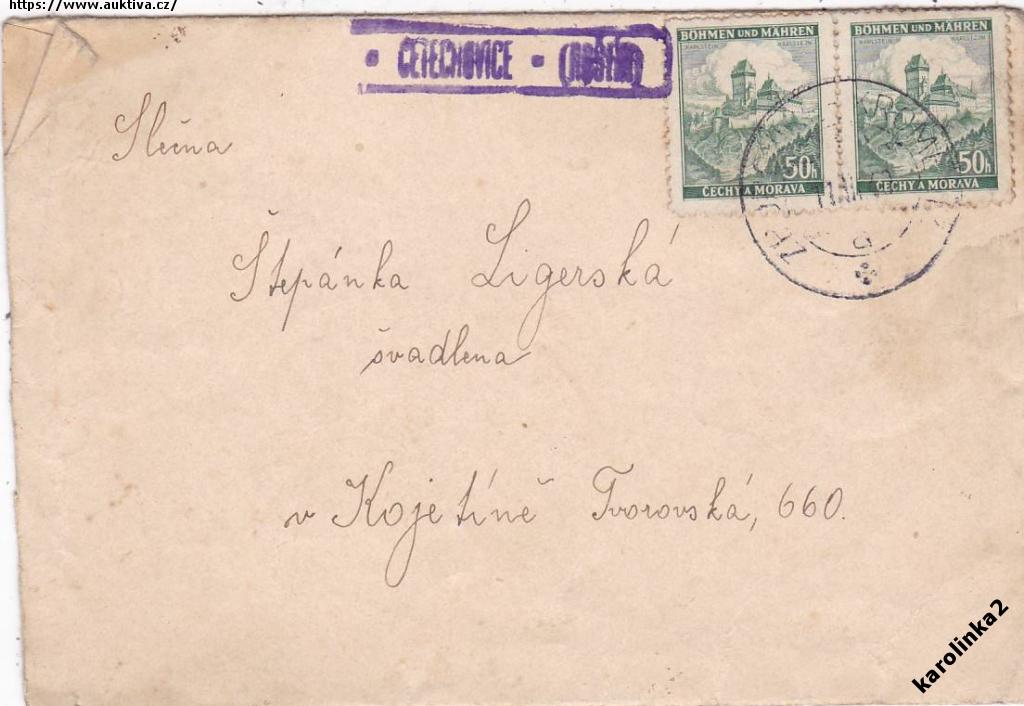 https://www.auktiva.cz/
• CETECHOVICE •
BÖHMEN UND MÄHREN
KARLSTEIN KARLŠTEJN
50h
ČECHY A MORAVA
BÖHMEN UND MÄHREN
KARLSTEIN KARLŠTEJN
50h
ČECHY A MORAVA
Slečna
Štepánka Ligerská
švadlena
v Kojetíně Tvorovská, 660.
karolinka2